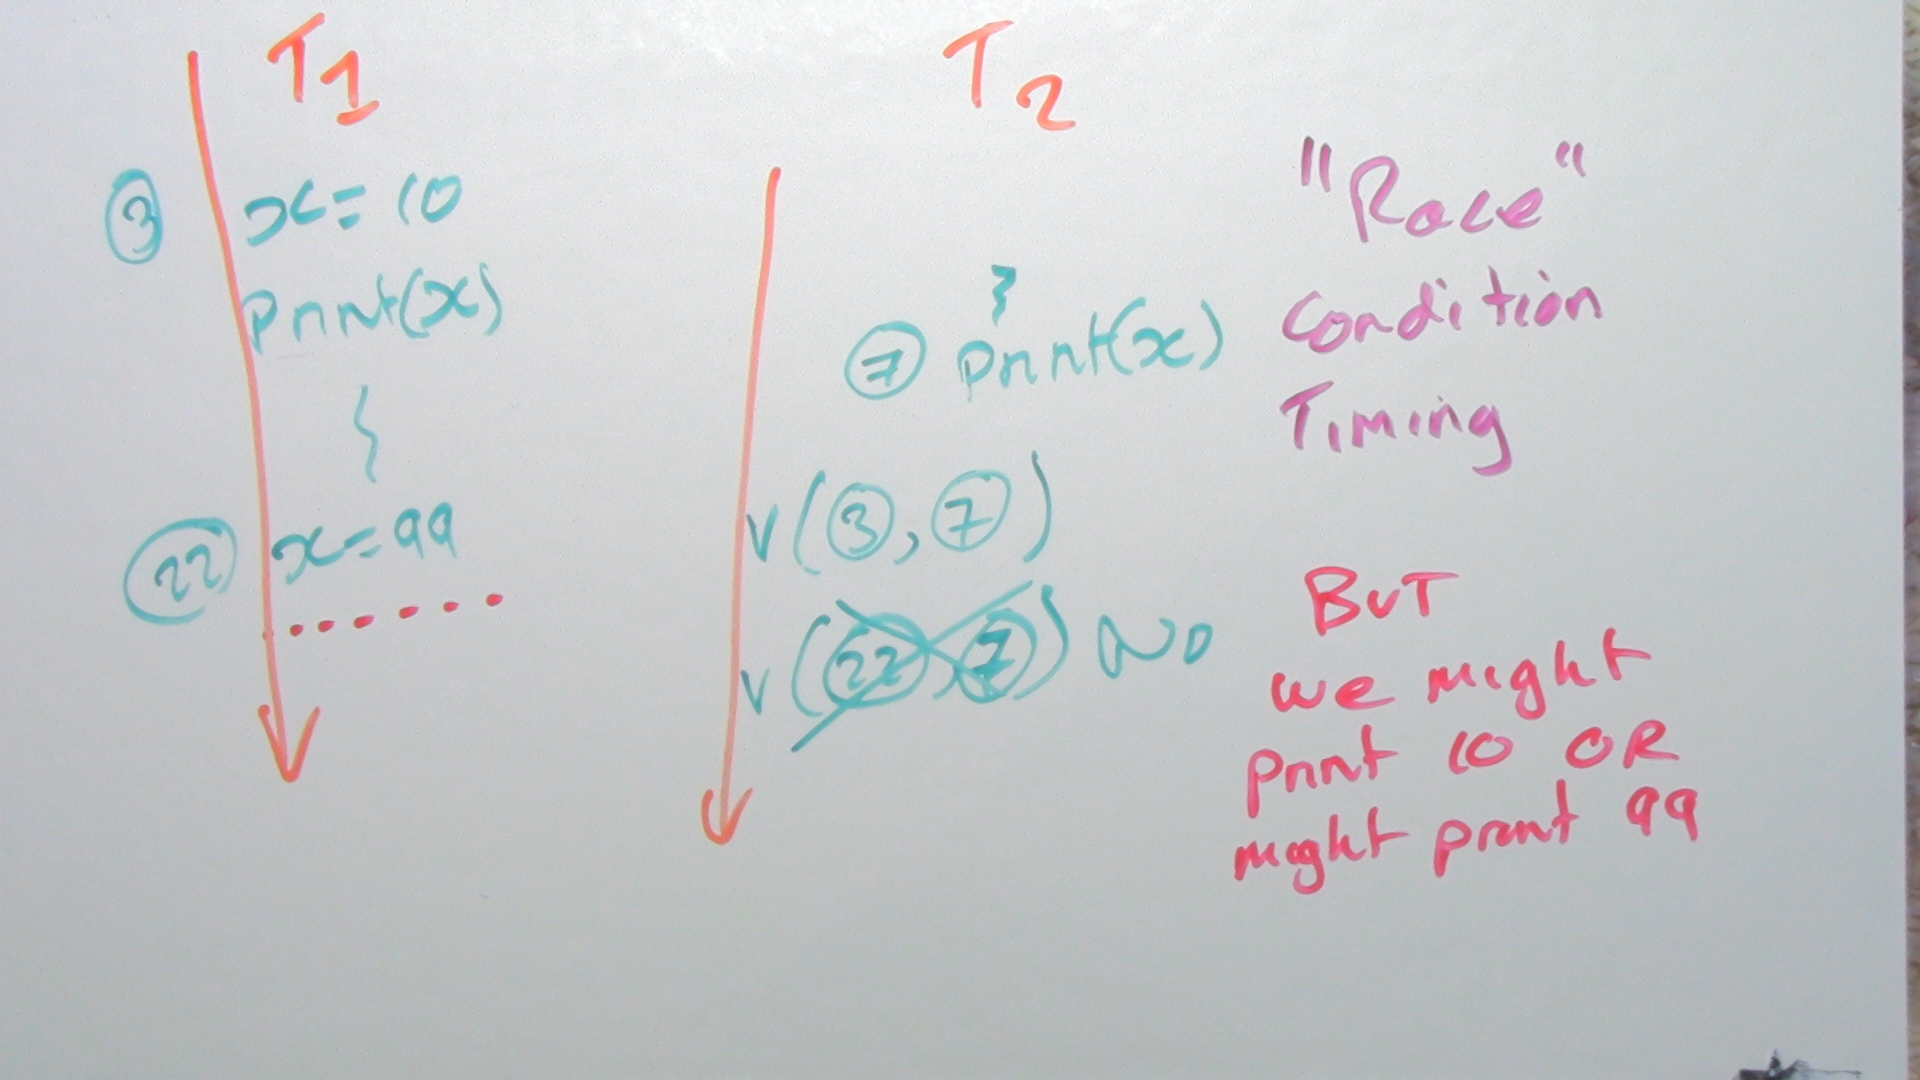 T1
3 x = 10
print(x)
22 x = 99
T2
7 print(x)
V(3, 7)
V(22, 7) NO
"Race"
Condition
Timing
BUT
we might
print 10 OR
might print 99